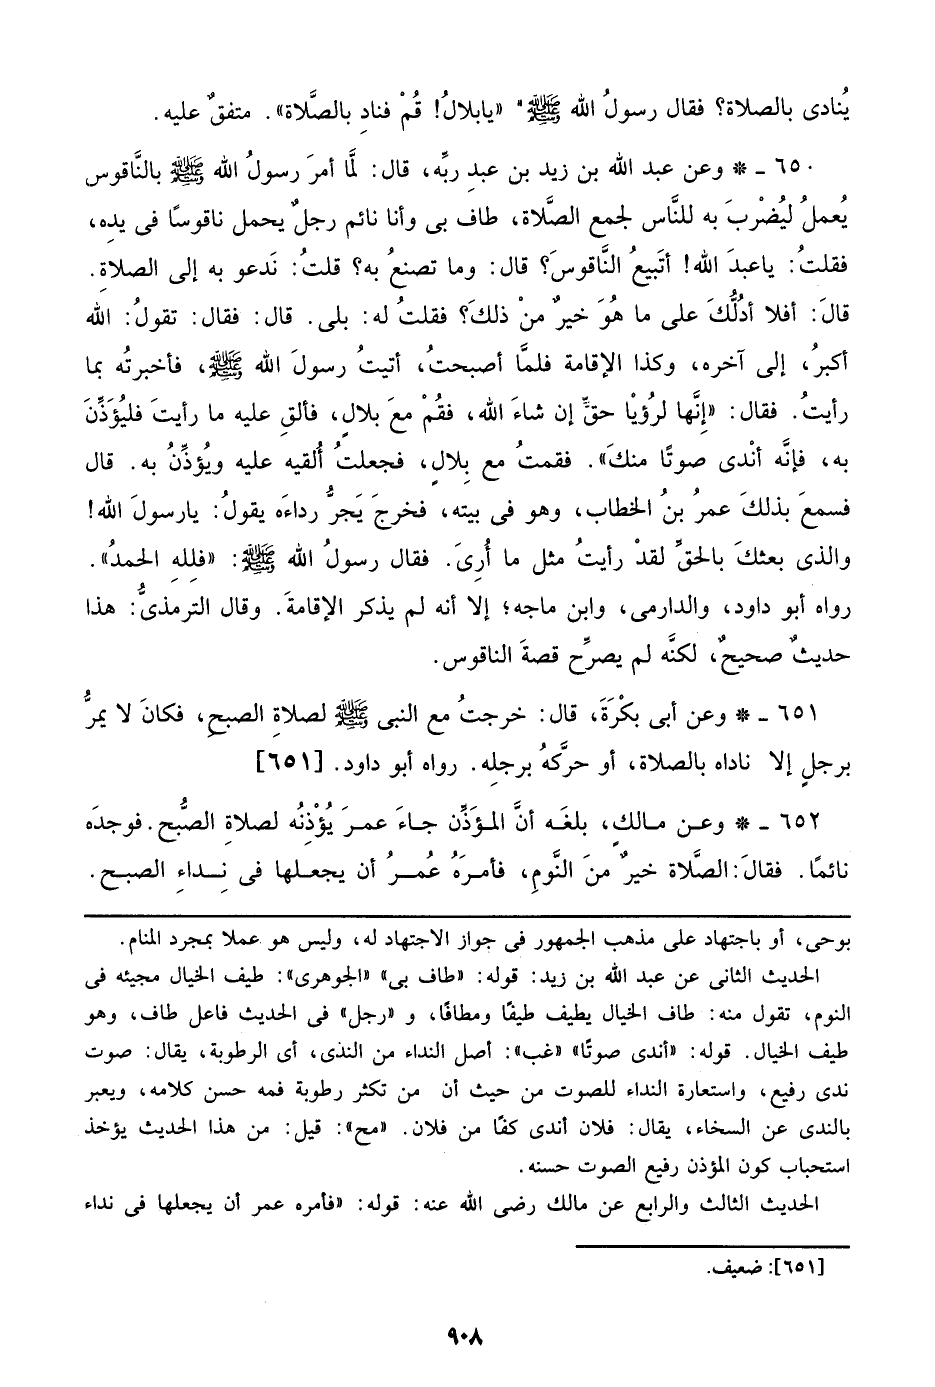 يُنادى بالصلاة؟ فقال رسولُ الله ﷺ" «يابلالُ! قُمْ فنادِ بالصَّلاة». متفقٌ عليه.
٦٥٠ ـ * وعن عبد الله بن زيد بن عبدِ ربِّه، قال: لَّما أمرَ رسولُ الله ﷺ بالنَّاقوس
يُعملُ ليُضْربَ به للنَّاس لجمع الصَّلاة، طاف بى وأنا نائم رجلٌ يحمل ناقوسًا فى يده،
فقلتُ: ياعبدَ الله! أتَبيعُ النَّاقوسَ؟ قال: وما تصنعُ به؟ قلتُ: نَدعو به إلى الصلاةِ.
قالَ: أفلا أدُلُّكَ على ما هُوَ خيرٌ منْ ذلكَ؟ فقلتُ له: بلى. قال: فقال: تقولُ: الله
أكبرُ، إلى آخره، وكذا الإقامة فلمَّا أصبحتُ، أتيتُ رسولَ الله ﷺ، فأخبرتُه بما
رأيتُ. فقال: «إنَّها لرُؤيْا حقٍّ إن شاءَ الله، فقُمْ معَ بلالٍ، فألقِ عليه ما رأيتَ فليُؤَذِّنَ
به، فإنَّه أنْدى صوتًا منكَ». فقمتُ مع بِلالٍ، فجعلتُ أُلقيه عليه ويُؤذِّنُ به. قال
فسمعَ بذلكَ عمرُ بنُ الخطاب، وهو فى بيته، فخرجَ يَجرُّ رداءَه يقولُ: يارسولَ الله!
والذى بعثكَ بالحقِّ لقدْ رأيتُ مثل ما أُرِىَ. فقال رسولُ الله ﷺ: «فلِلهِ الحمدُ».
رواه أبو داود، والدارمى، وابن ماجه؛ إلا أنه لم يذكر الإقامةَ. وقال الترمذىُّ: هذا
حديثٌ صحيحٌ، لكنَّه لم يصرِّح قصةَ الناقوس.
٦٥١ ـ * وعن أبى بكْرَةَ، قال: خرجتُ مع النبى ﷺ لصلاةِ الصبحِ، فكانَ لا يمرُّ
برجلٍ إلا ناداه بالصلاة، أو حرَّكهُ برجلِه. رواه أبو داود. [٦٥١]
٦٥٢ ـ * وعـن مـالكٍ، بلغَـه أنَّ المـؤذِّن جـاءَ عمـرَ يُؤْذِنُه لصلاةِ الصُّبح. فوجدَه
نائمًا. فقالَ: الصَّلاة خيرٌ منَ النَّومِ، فأمـرَهُ عُمـرُ أن يجعـلها فى نِـداءِ الصبـح.
بوحى، أو باجتهاد على مذهب الجمهور فى جواز الاجتهاد له، وليس هو عملا بمجرد المنام.
الحديث الثانى عن عبد الله بن زيد: قوله: «طاف بى» «الجوهرى»: طيف الخيال مجيئه فى
النوم، تقول منه: طاف الخيال يطيف طيفًا ومطافًا، و «رجل» فى الحديث فاعل طاف، وهو
طيف الخيال. قوله: «أندى صوتًا» «غب»: أصل النداء من الندى، أى الرطوبة، يقال: صوت
ندى رفيع، واستعارة النداء للصوت من حيث أن من تكثر رطوبة فمه حسن كلامه، ويعبر
بالندى عن السخاء، يقال: فلان أندى كفًا من فلان. «مح»: قيل: من هذا الحديث يؤخذ
استحباب كون المؤذن رفيع الصوت حسنه.
الحديث الثالث والرابع عن مالك رضى الله عنه: قوله: «فأمره عمر أن يجعلها فى نداء
[٦٥١]: ضعيف.
٩٠٨